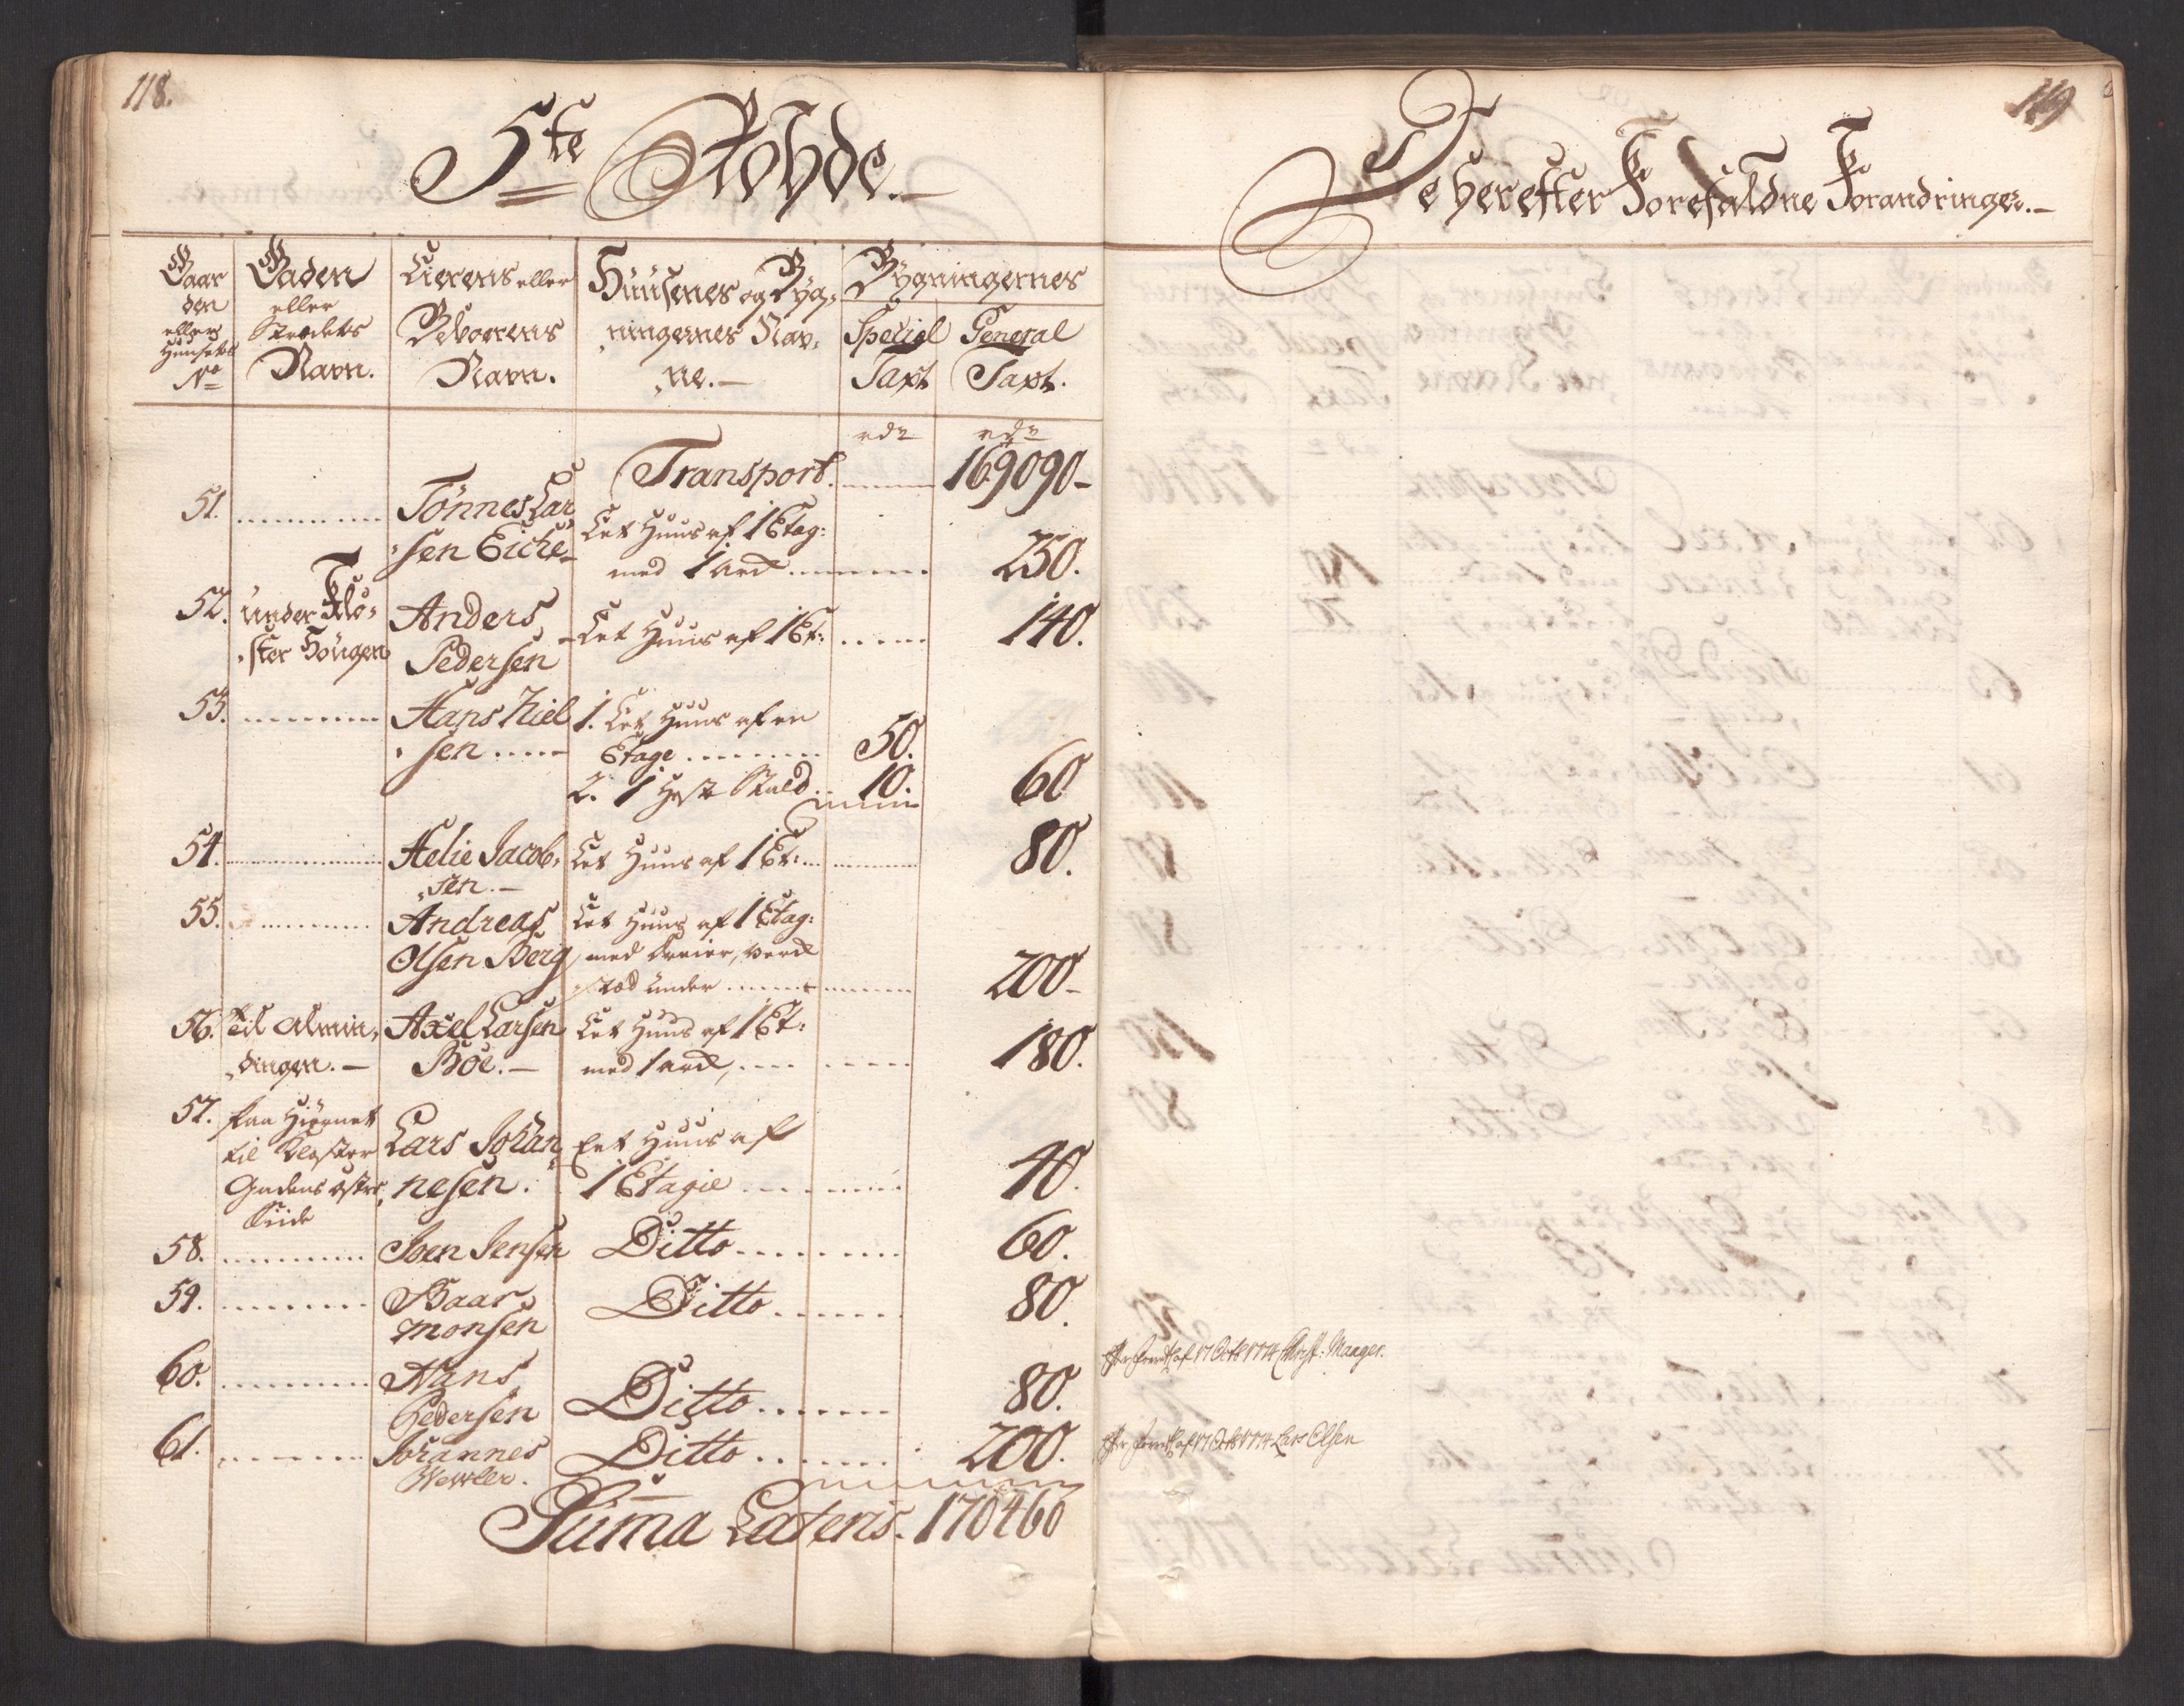 118.
5te Rohde.
Gaar
den
eller
Huusets
No
Gaden
eller
Strædets
Navn.
Eierens eller
Beboerens
Navn.
Huusenes og Byg,
ningernes Nav,
ne.
Bygningernes
Special
Taxt
General
Taxt.
rdr
rdr
Transport. 169090-
51. Tönnes Lar
sen Eiche
Eet Huus af 1 Etag:
med 250.
52. under Klo,
ster Hougen
Anders
Pedersen
Eet Huus af 1 Et: 140.
53. Hans Niel
sen
1. Eet Huus af en
Etage 50.
2. 1 Hest Stald 10. 60
54. Helie Jacob,
sen.
Eet Huus af 1 Et: 80.
55. Andreas
Olsen Berg
Eet Huus af 1 Etag:
med Dreier, Verck
stæd under 200-
56. til Almin,
dingen.
Axel Larsen
Böe.
Eet Huus af 1 Et:
med 180.
57. paa Hiørnet
til Kloster
Gadens østre
Siide
Lars Johan
nesen.
Eet Huus af
1 Etagie 40.
58. Joen Jensen Ditto 60.
59. Baar
Monsen
Ditto 80.
60. Hans
Pedersen
Ditto 80.
61. Johannes
Ditto 200.
Suma Lateris. 170460
119
De herefter Forefaldne Forandringer.
af 17 Octb 1774 Christ: Maager.
af 17 Octb 1774 Lars Olsen